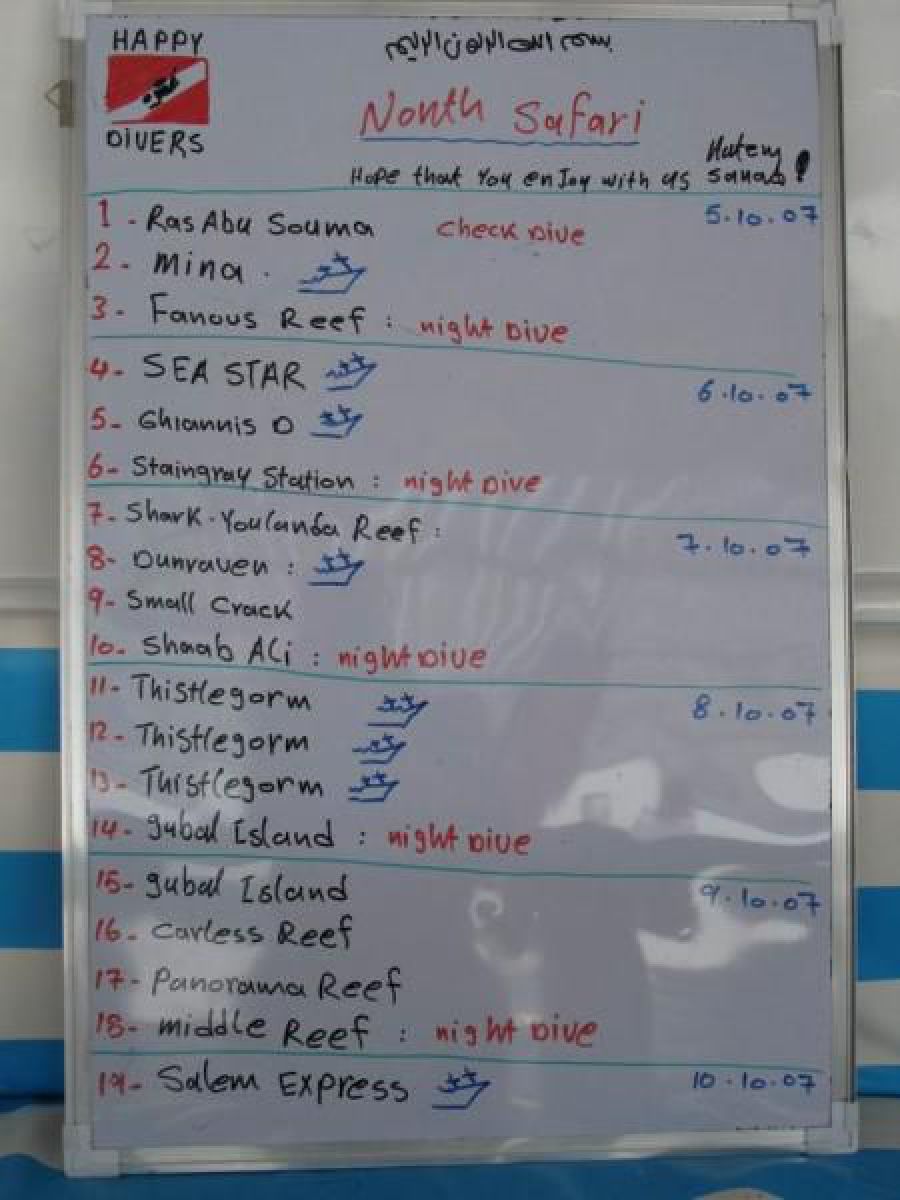 HAPPY
DIVERS
بسم الله الرحمن الرحيم
North Safari
Hope that You enJoy with us
Hatem
5.10.07
1 - Ras Abu Souma check Dive
2 - Mina .
3 - Fanous Reef : night Dive
4 - SEA STAR
6.10.07
5 - Ghiannis D
6 - Staingray Station : night Dive
7 - Shark . Youlanda Reef :
7.10.07
8 - Dunraven :
9 - Small Crack
10 - Shaab Ali : night Dive
11 - Thistlegorm
8.10.07
12 - Thistlegorm
13 - Thistlegorm
14 - gubal Island : night Dive
15 - gubal Island
9.10.07
16 - Carless Reef
17 - Panorama Reef
18 - middle Reef : night Dive
19 - Salem Express
10.10.07